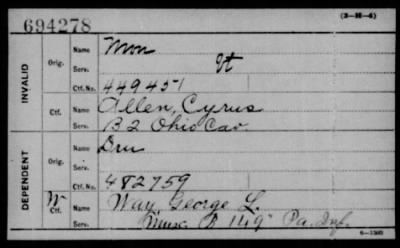 694278
(3-M-4)
INVALID
Orig.
Name
Serv.
Ctf. No. 449451
Ctf.
Name Allen, Cyrus
Serv. B 2 Ohio Cav.
DEPENDENT
Orig.
Name
Serv.
Ctf. No. 482759
W Ctf.
Name Way, George L.
Serv. Mus. 149" Pa. Inf.
6—1380